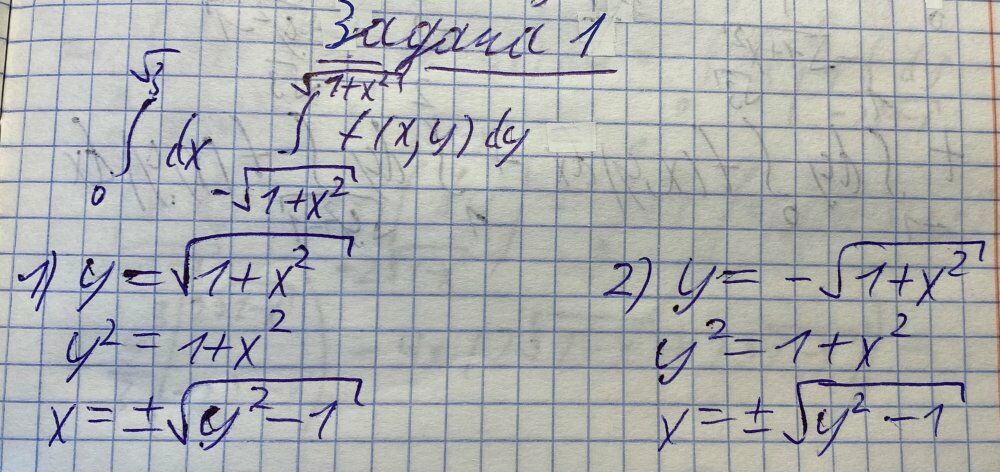 Задача 1
∫₀^√3 dx ∫_{-√(1+x²)}^{√(1+x²)} f(x,y) dy
1) y = √(1+x²) 2) y = -√(1+x²)
y² = 1+x² y² = 1+x²
x = ±√(y²-1) x = ±√(y²-1)